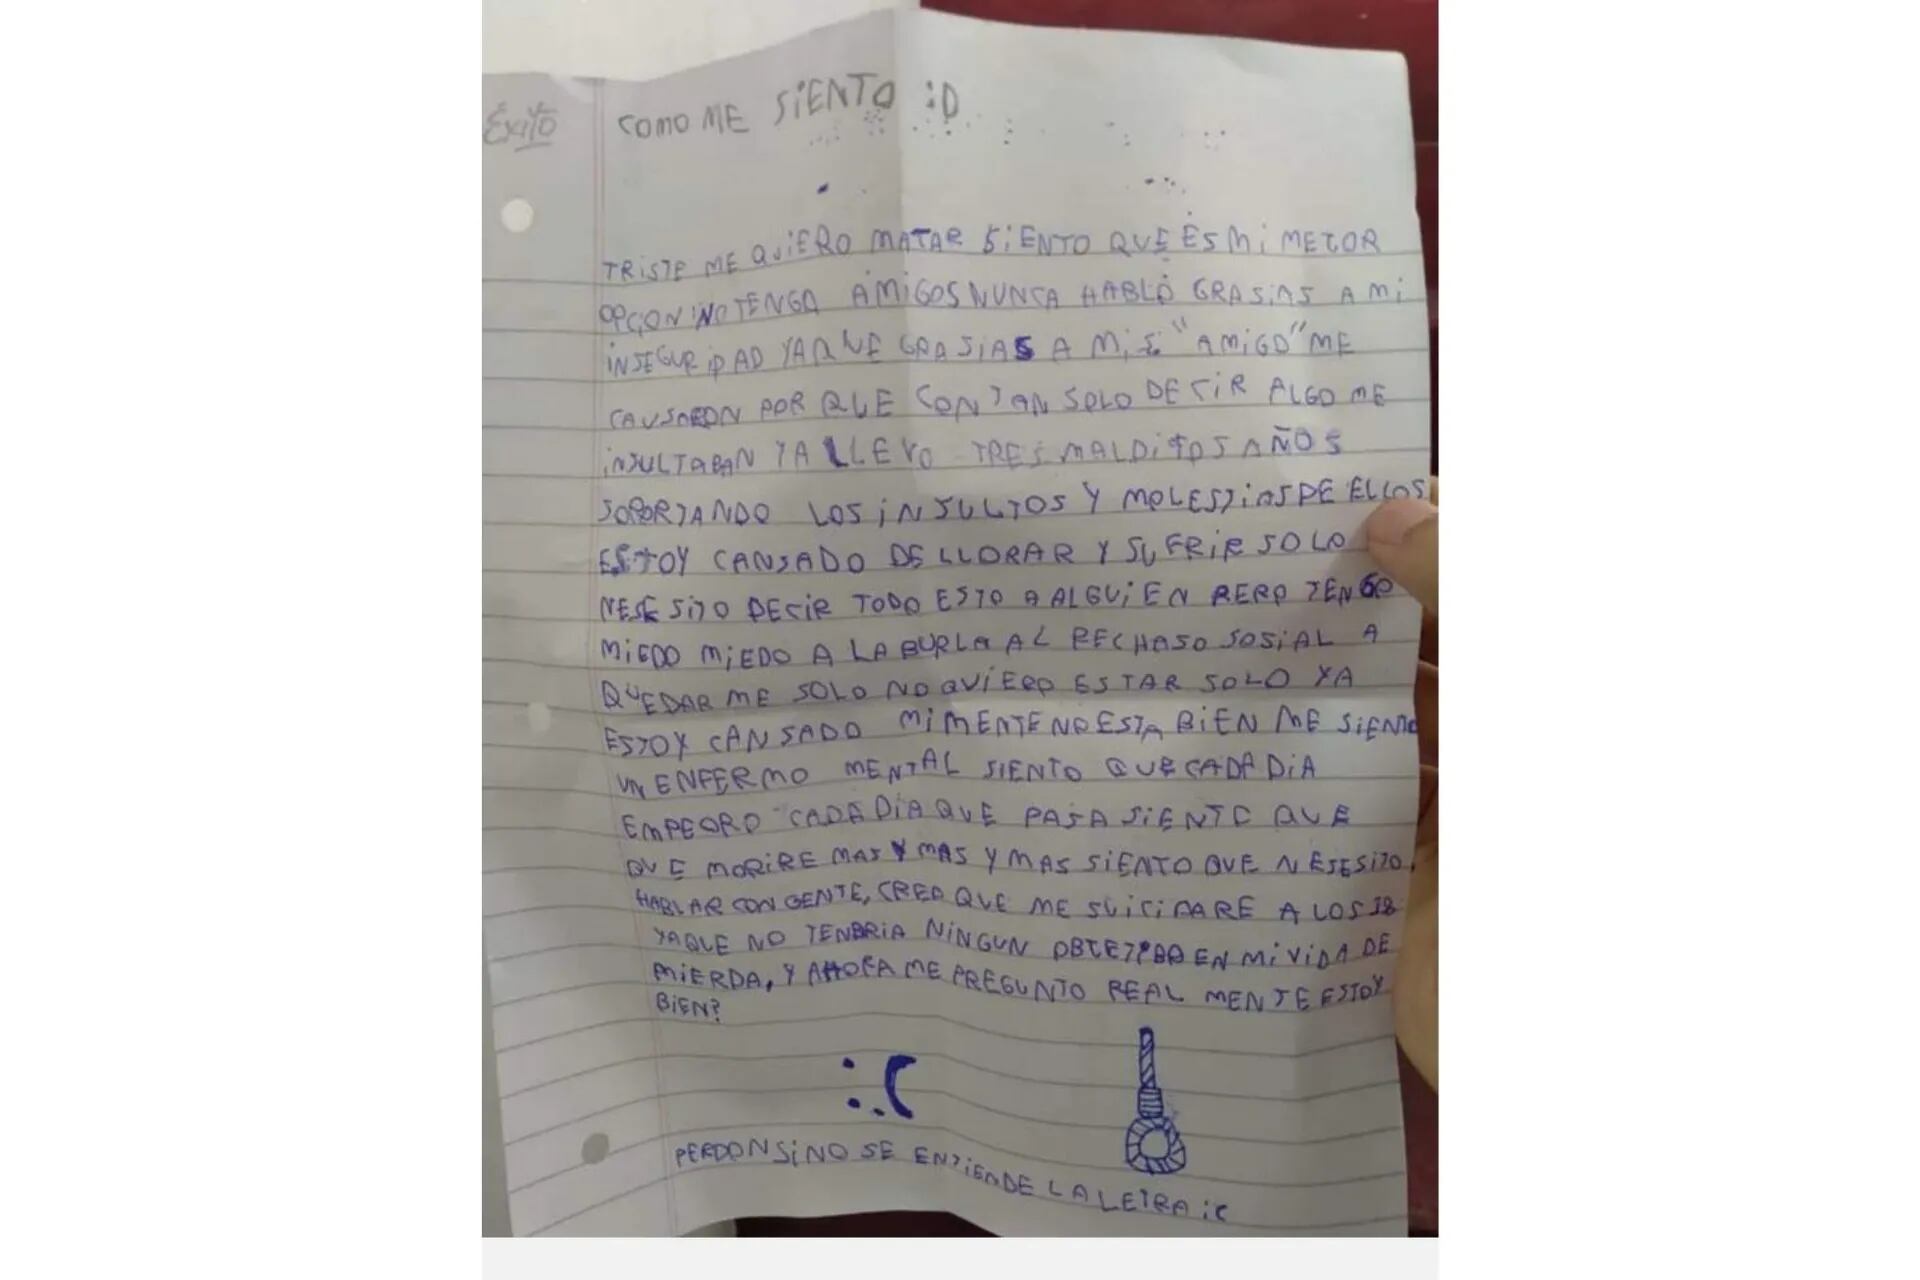 Éxito
COMO ME SIENTO :D
TRISTE ME QUIERO MATAR SIENTO QUE ES MI METOR
OPCION NO TENGO AMIGOS NUNCA HABLO GRASIAS A MI
INSEGURIDAD YA QUE GRASIAS A MIS "AMIGO" ME
CAUSARON POR QUE CON TAN SOLO DECIR ALGO ME
INSULTABAN YA LLEVO TRES MALDITOS AÑOS
SOPORTANDO LOS INSULTOS Y MOLESTIAS DE ELLOS
ESTOY CANSADO DE LLORAR Y SUFRIR SOLO
NESESITO DECIR TODO ESTO A ALGUIEN PERO TENGO
MIEDO MIEDO A LA BURLA AL RECHASO SOSIAL A
QUEDAR ME SOLO NO QUIERO ESTAR SOLO YA
ESTOY CANSADO MI MENTE NO ESTA BIEN ME SIENTO
UN ENFERMO MENTAL SIENTO QUE CADA DIA
EMPEORO CADA DIA QUE PASA SIENTO QUE
QUE MORIRE MAS Y MAS Y MAS SIENTO QUE NESESITO
HABLAR CON GENTE, CREO QUE ME SUICIDARE A LOS 18
YA QUE NO TENDRIA NINGUN EN MI VIDA DE
MIERDA, Y AHORA ME PREGUNTO REAL MENTE ESTOY
BIEN?
:.(
PERDON SI NO SE ENTIENDE LA LETRA :c